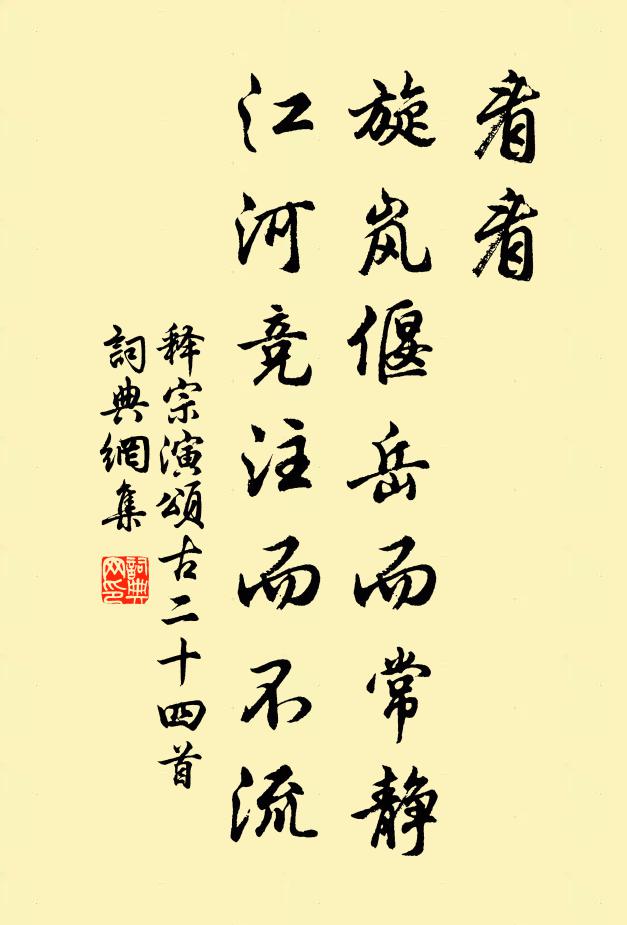 看看
旋岚偃岳而常静
江河竞注而不流
释宗演頌古二十四首
詞典網集
詞典网印